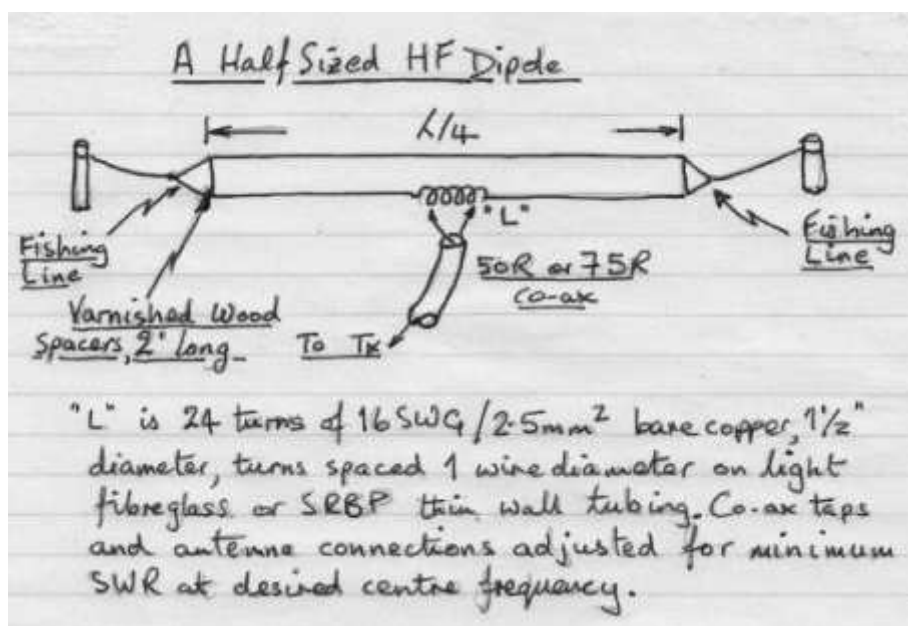 A Half Sized HF Dipole
λ/4
"L"
Fishing
Line
Fishing
Line
50R or 75R
Co-ax
Varnished Wood
Spacers, 2' long
To Tx
"L" is 24 turns of 16 SWG/2.5mm² bare copper, 1½"
diameter, turns spaced 1 wire diameter on light
fibreglass or SRBP thin wall tubing. Co-ax taps
and antenna connections adjusted for minimum
SWR at desired centre frequency.